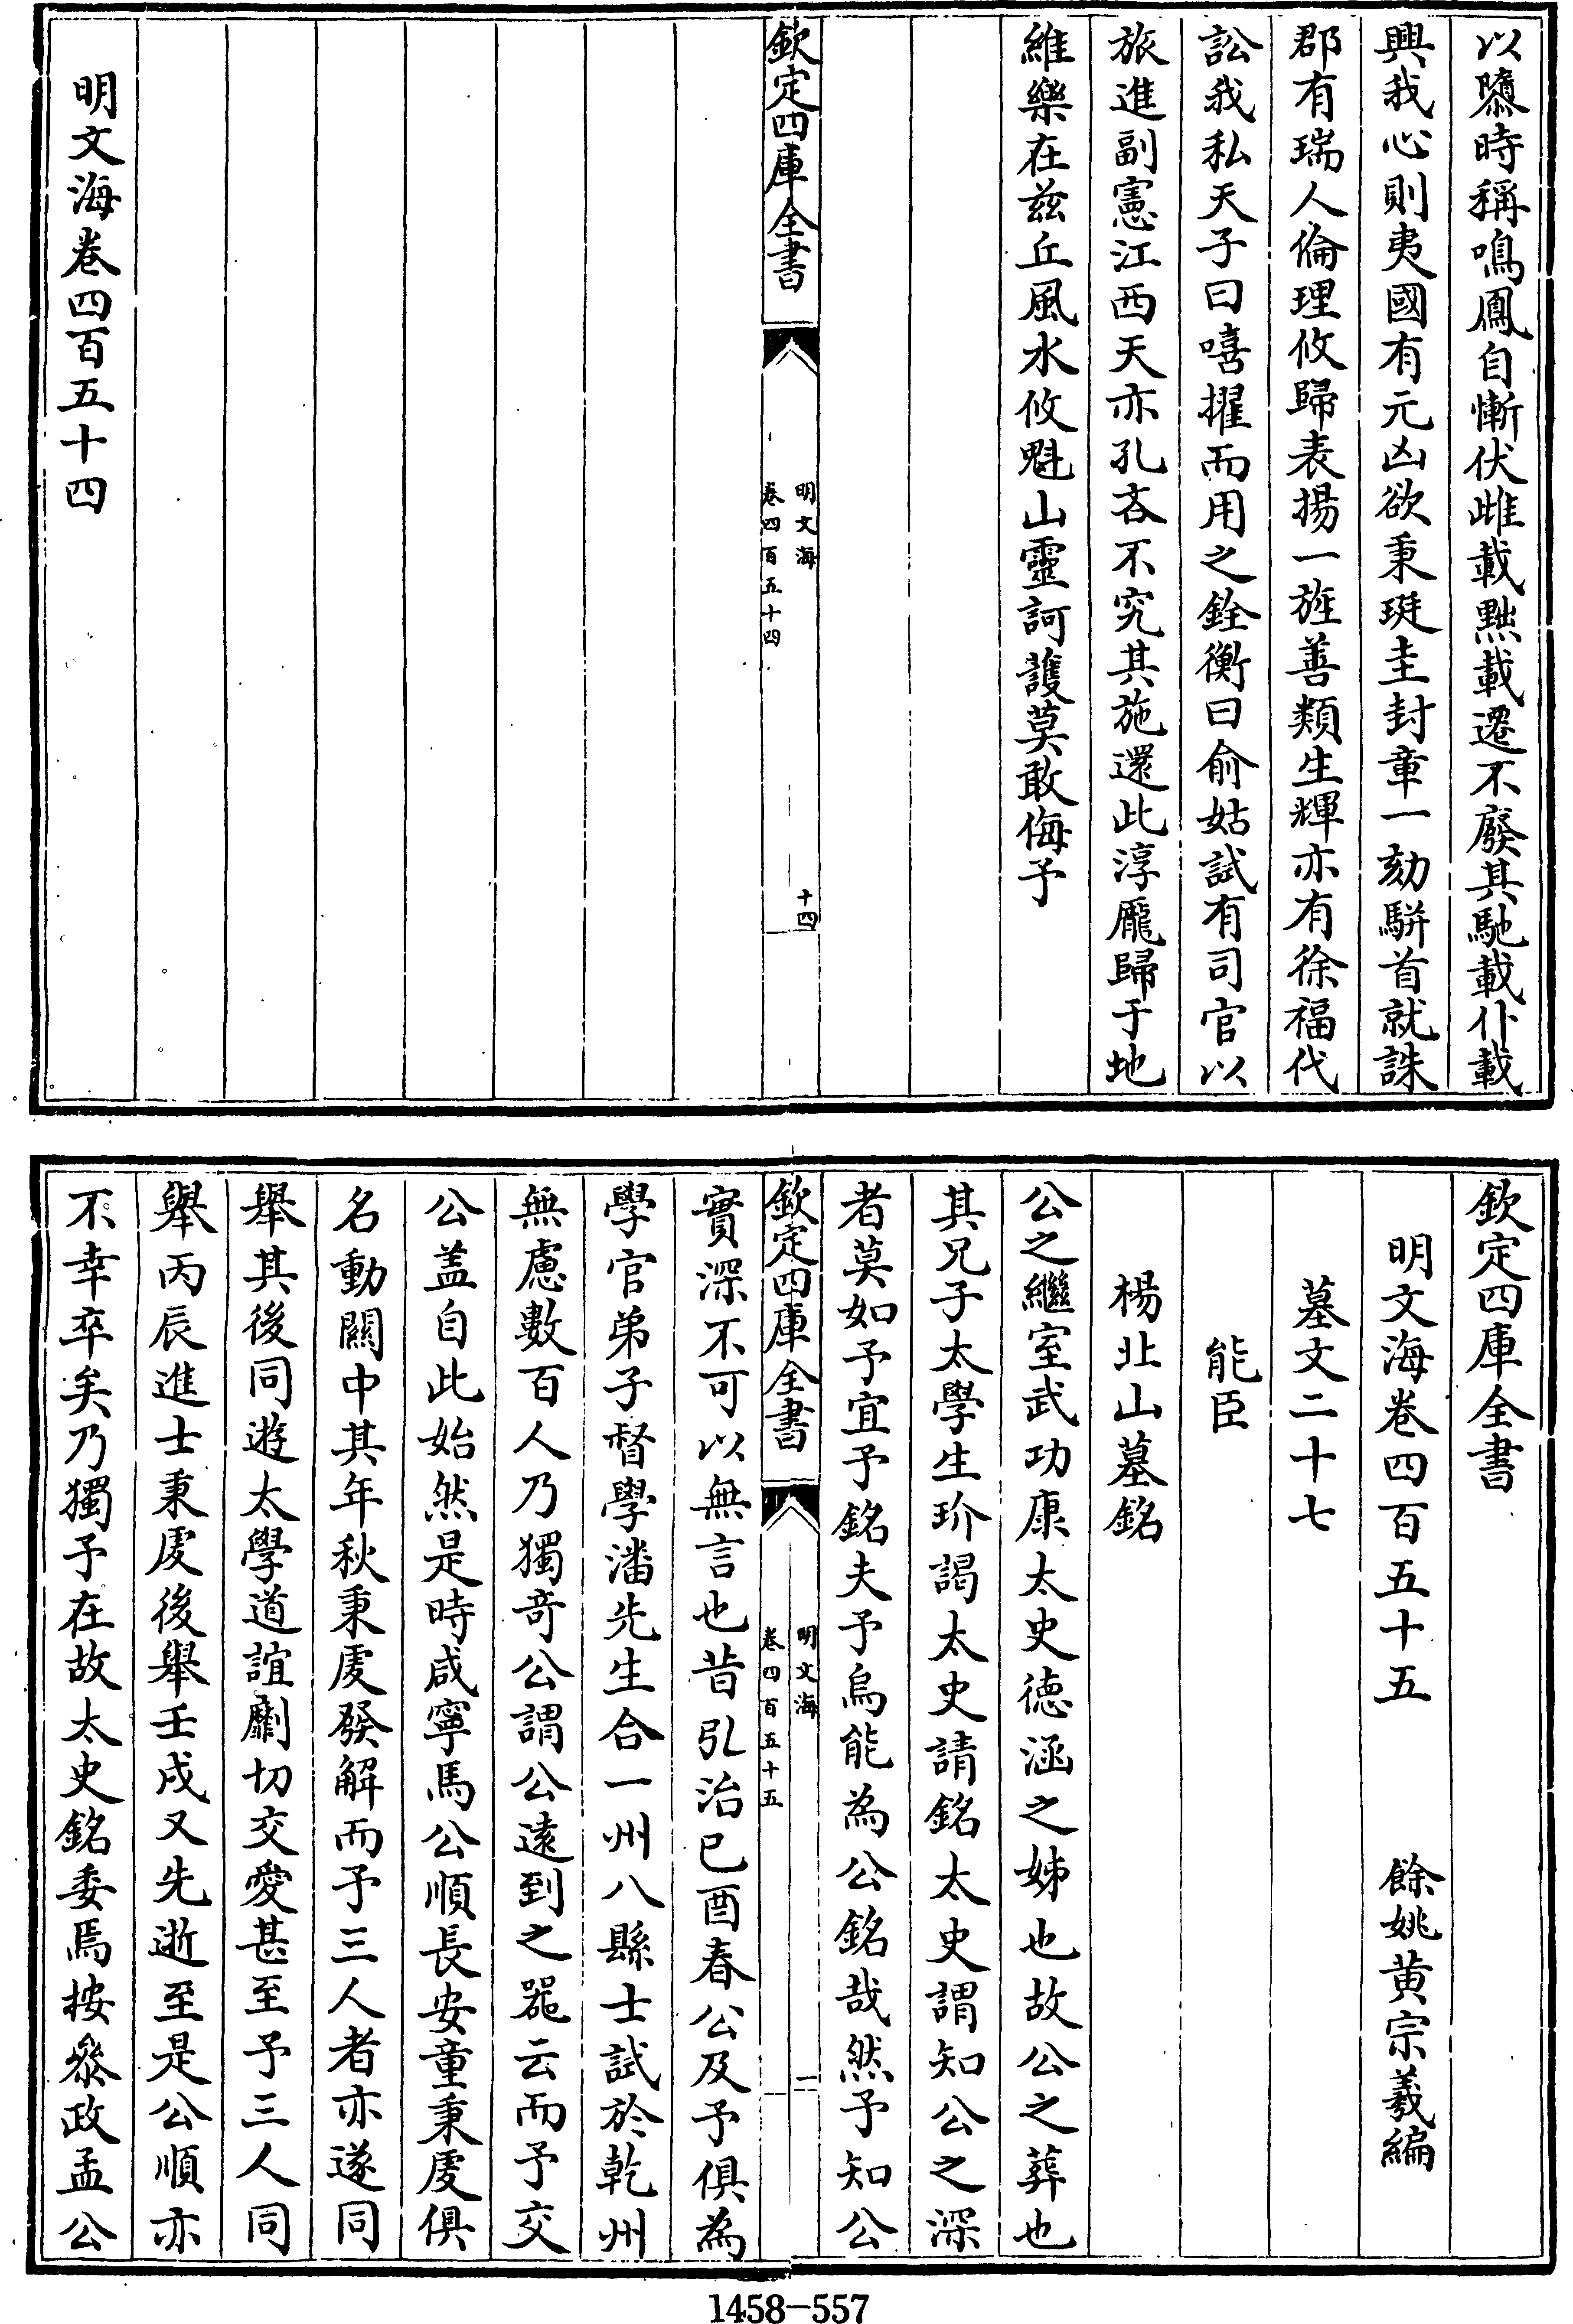 以隳時稱鳴鳳自慚伏雌載黜載遷不廢其馳載仆載
興我心則夷國有元凶欲秉珽圭封章一劾駢首就誅
郡有瑞人倫理攸歸表揚一旌善類生輝亦有徐福代
訟我私天子曰嘻擢而用之銓衡曰俞姑試有司官以
旅進副憲江西天亦孔吝不究其施還此淳龎歸于地
維樂在兹丘風水攸魁山靈訶護莫敢侮予
欽定四庫全書
明文海
卷四百五十四
十四
明文海卷四百五十四
欽定四庫全書
明文海卷四百五十五 餘姚黄宗羲編
墓文二十七
能臣
楊北山墓銘
公之繼室武功康太史德涵之姊也故公之葬也
其兄子太學生玠謁太史請銘太史謂知公之深
者莫如予宜予銘夫予烏能為公銘哉然予知公
欽定四庫全書
明文海
卷四百五十五
一
實深不可以無言也昔弘治已酉春公及予俱為
學官弟子督學潘先生合一州八縣士試於乾州
無慮數百人乃獨奇公謂公遠到之器云而予交
公盖自此始然是時咸寧馬公順長安童秉䖍俱
名動關中其年秋秉䖍發解而予三人者亦遂同
舉其後同遊太學道誼劘切交愛甚至予三人同
舉丙辰進士秉䖍後舉壬戌又先逝至是公順亦
不幸卒矣乃獨予在故太史銘委焉按叅政孟公
1458-557